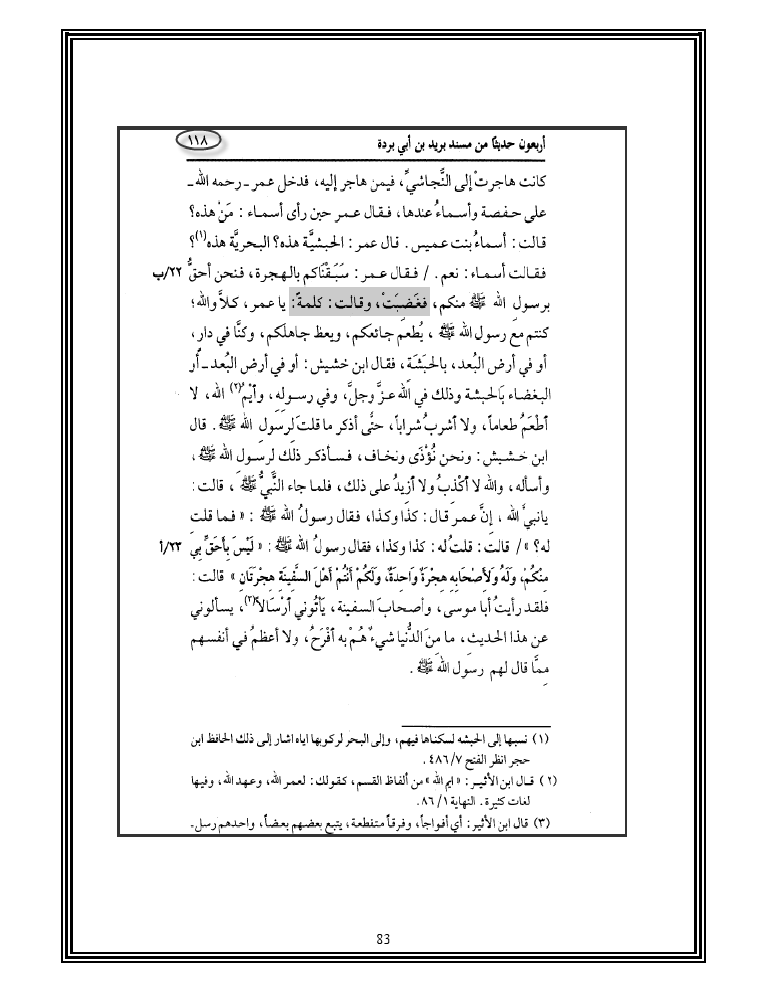 أربعون حديثًا من مسند بريد بن أبي بردة
١١٨
كانت هاجرتْ إلى النَّجاشيِّ، فيمن هاجر إليه، فدخل عمر ـ رحمه الله ـ
على حفصة وأسماءُ عندها، فقال عمر حين رأى أسماء : مَنْ هذه؟
قالت : أسماءُ بنت عميس . قال عمر : الحبشيَّة هذه؟ البحريَّة هذه(١)؟
فقالت أسماء : نعم . / فقال عمر : سَبَقْنَاكم بالهجرة، فنحن أحقُّ ٢٢/ب
برسول الله ﷺ منكم، فغَضِبَتْ، وقالت : كلمةً : يا عمر، كلاَّ والله؛
كنتم مع رسول الله ﷺ ، يُطعم جائعكم، ويعظ جاهلكم، وكنَّا في دار،
أو في أرض البُعد، بالحبَشَة، فقال ابن خشيش : أو في أرض البُعد ـ أو
البغضاء بالحبشة وذلك في الله عزَّ وجلَّ، وفي رسوله، وأيْمُ(٢) الله، لا
أطْعَمُ طعاماً، ولا أشربُ شراباً، حتَّى أذكر ما قلتَ لرسول الله ﷺ . قال
ابن خشيش : ونحن نُؤْذَى ونخاف، فسأذكر ذلك لرسول الله ﷺ ،
وأسأله، والله لا أكْذِبُ ولا أزيدُ على ذلك، فلما جاء النَّبيُّ ﷺ ، قالت :
يا نبيَّ الله ، إنَّ عمر قال : كذا وكذا، فقال رسولُ الله ﷺ : « فما قلت
له؟ »/ قالت : قلتُ له : كذا وكذا، فقال رسولُ الله ﷺ : « لَيْسَ بِأَحَقَّ بِي ٢٣/أ
مِنْكُمْ، وَلَهُ وَلأَصْحَابِهِ هِجْرَةٌ وَاحِدَةٌ، وَلَكُمْ أَنْتُمْ أَهْلَ السَّفِينَةِ هِجْرَتَانِ » قالت :
فلقد رأيتُ أبا موسى، وأصحابَ السفينة، يَأتُوني أرْسَالاً(٣)، يسألوني
عن هذا الحديث، ما منَ الدُّنيا شيءٌ هُمْ به أفْرَحُ، ولا أعظمُ في أنفسهم
ممَّا قال لهم رسول الله ﷺ .
(١) نسبها إلى الحبشه لسكناها فيهم، وإلى البحر لركوبها اياه اشار إلى ذلك الحافظ ابن
حجر انظر الفتح ٧/ ٤٨٦ .
(٢) قال ابن الأثير : «ايم الله» من ألفاظ القسم، كقولك : لعمر الله، وعهد الله، وفيها
لغات كثيرة . النهاية ١/ ٨٦.
(٣) قال ابن الأثير : أي أفواجاً، وفرقاً متقطعة، يتبع بعضهم بعضاً، واحدهم رسل .
83